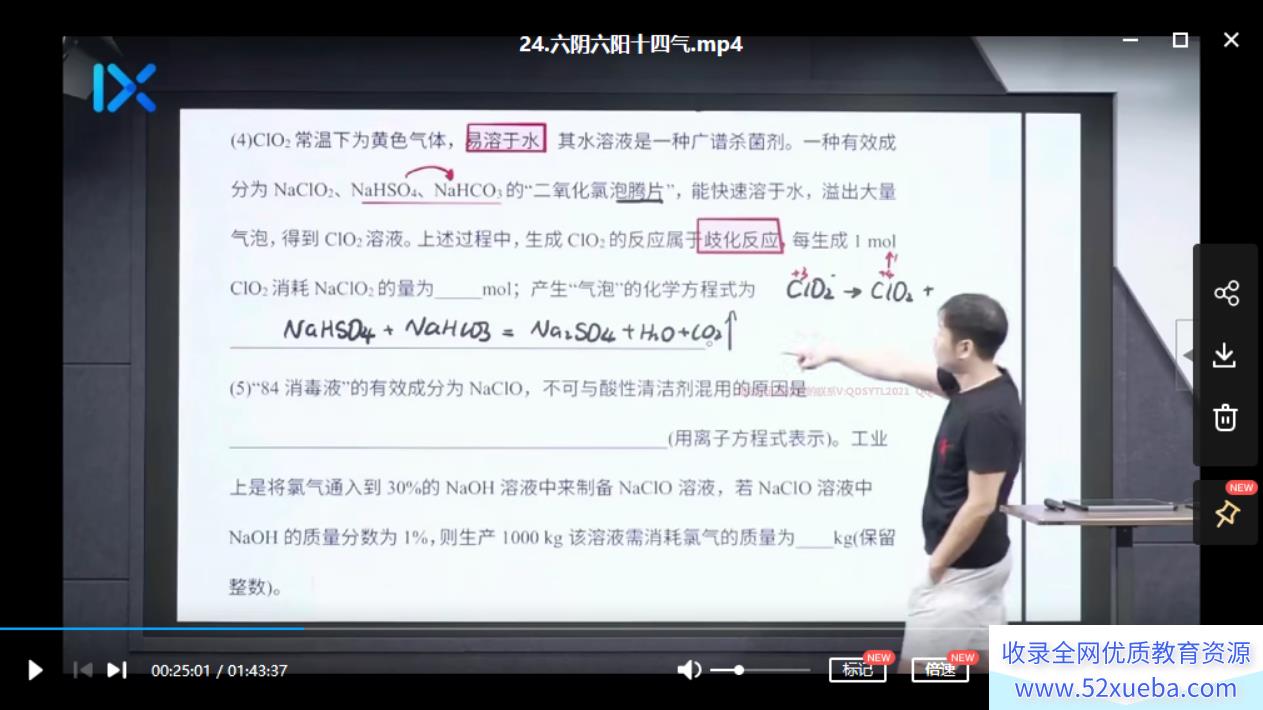 24.六阴六阳十四气.mp4
(4)ClO₂ 常温下为黄色气体，易溶于水 其水溶液是一种广谱杀菌剂。一种有效成
分为 NaClO₂、NaHSO₄、NaHCO₃ 的“二氧化氯泡腾片”，能快速溶于水，溢出大量
气泡，得到 ClO₂ 溶液。上述过程中，生成 ClO₂ 的反应属于歧化反应，每生成 1 mol
ClO₂ 消耗 NaClO₂ 的量为____mol；产生“气泡”的化学方程式为
+3 +4
ClO₂⁻ → ClO₂ +
NaHSO₄ + NaHCO₃ = Na₂SO₄ + H₂O + CO₂↑
(5)“84 消毒液”的有效成分为 NaClO，不可与酸性清洁剂混用的原因是
联系V:QDSYTL2021
(用离子方程式表示)。工业
上是将氯气通入到 30%的 NaOH 溶液中来制备 NaClO 溶液，若 NaClO 溶液中
NaOH 的质量分数为 1%，则生产 1000 kg 该溶液需消耗氯气的质量为____kg(保留
整数)。
NEW
00:25:01 / 01:43:37
标记 NEW
倍速 NEW
收录全网优质教育资源
www.52xueba.com